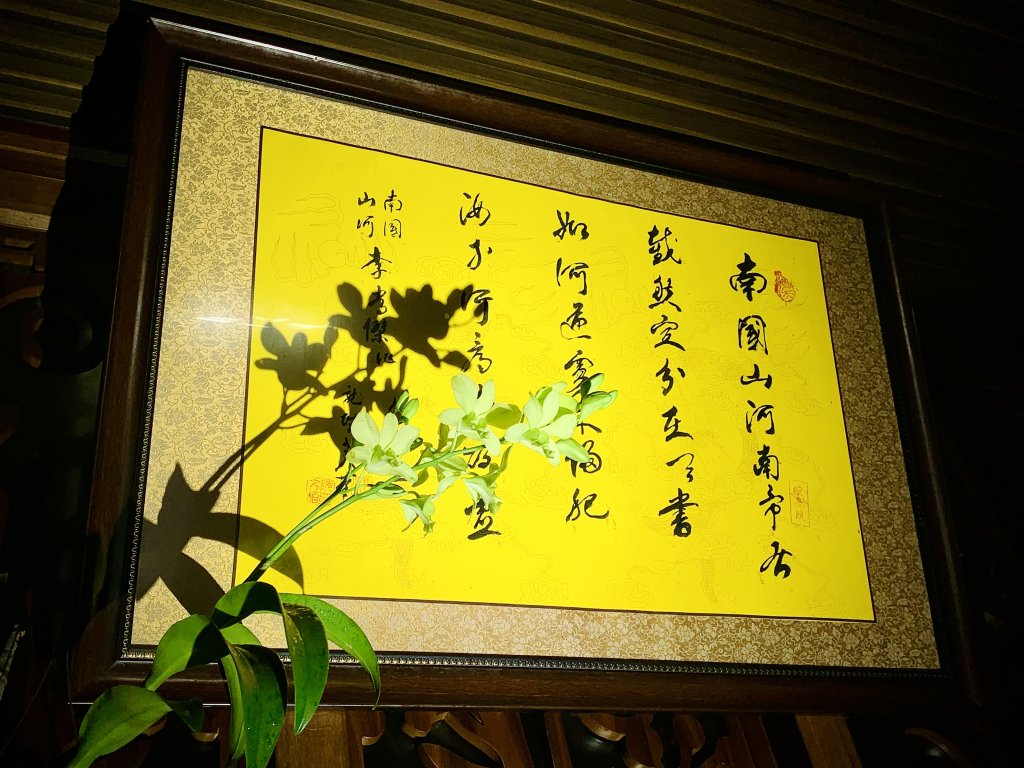 南國山河南帝居
截然定分在天書
如何逆虜来侵犯
汝等行看取敗虚
南国
山河
李常傑